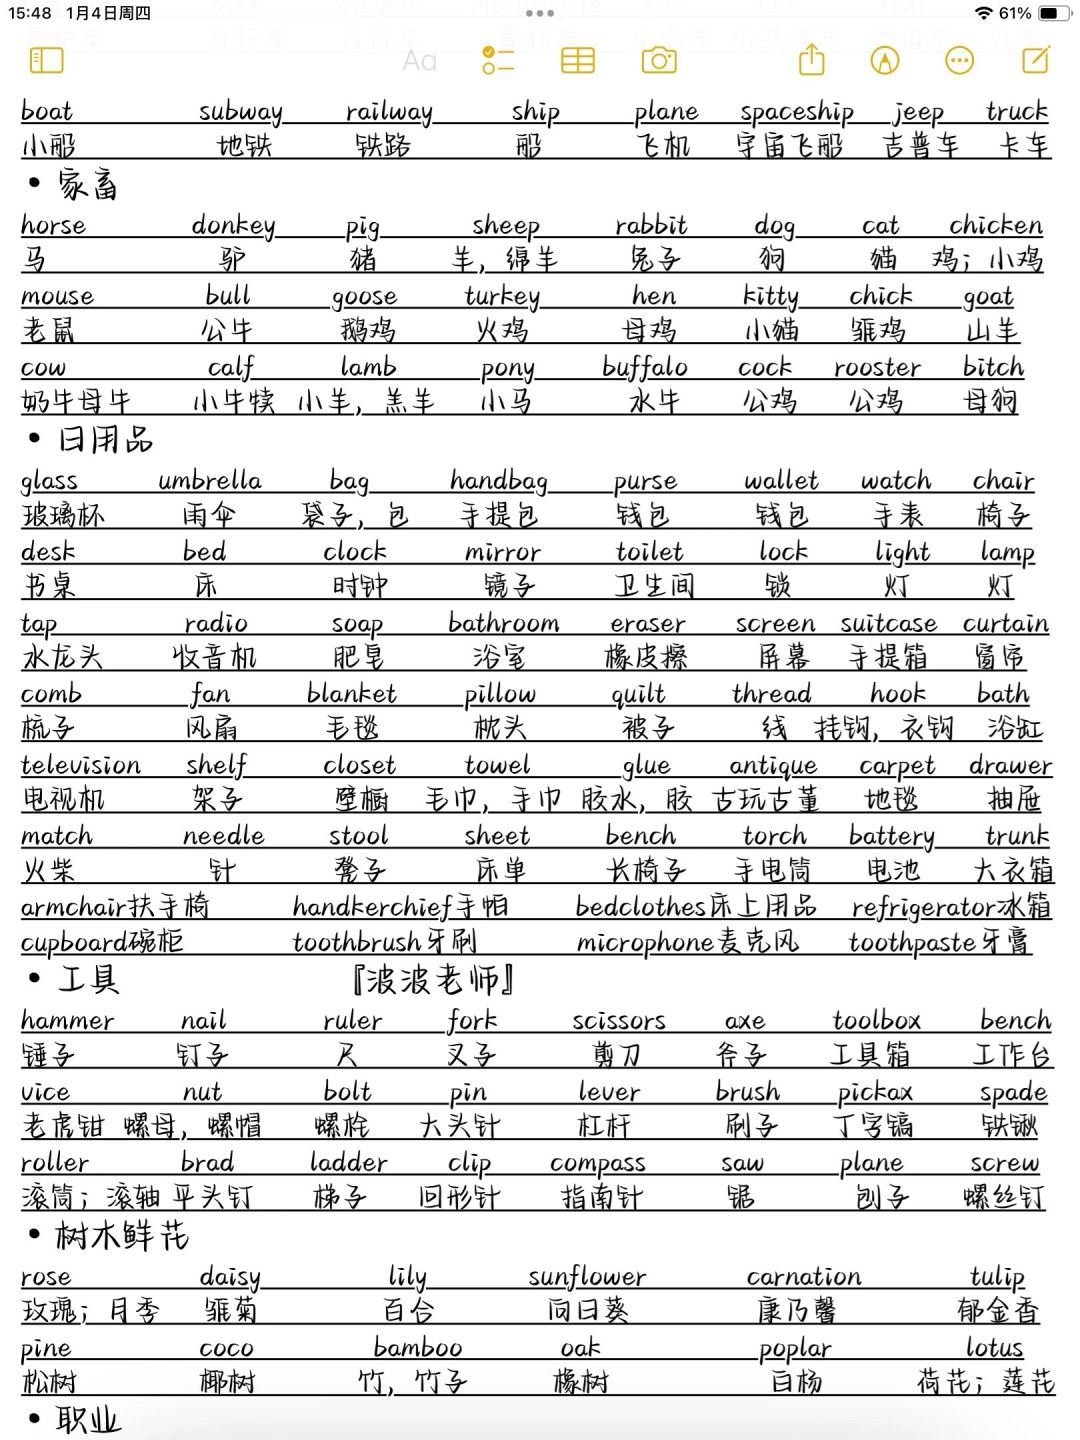 15:48 1月4日周四 61%
Aa
boat subway railway ship plane spaceship jeep truck
小船 地铁 铁路 船 飞机 宇宙飞船 吉普车 卡车
• 家畜
horse donkey pig sheep rabbit dog cat chicken
马 驴 猪 羊，绵羊 兔子 狗 猫 鸡；小鸡
mouse bull goose turkey hen kitty chick goat
老鼠 公牛 鹅鸡 火鸡 母鸡 小猫 雏鸡 山羊
cow calf lamb pony buffalo cock rooster bitch
奶牛母牛 小牛犊 小羊，羔羊 小马 水牛 公鸡 公鸡 母狗
• 日用品
glass umbrella bag handbag purse wallet watch chair
玻璃杯 雨伞 袋子，包 手提包 钱包 钱包 手表 椅子
desk bed clock mirror toilet lock light lamp
书桌 床 时钟 镜子 卫生间 锁 灯 灯
tap radio soap bathroom eraser screen suitcase curtain
水龙头 收音机 肥皂 浴室 橡皮擦 屏幕 手提箱 窗帘
comb fan blanket pillow quilt thread hook bath
梳子 风扇 毛毯 枕头 被子 线 挂钩，衣钩 浴缸
television shelf closet towel glue antique carpet drawer
电视机 架子 壁橱 毛巾，手巾 胶水，胶 古玩古董 地毯 抽屉
match needle stool sheet bench torch battery trunk
火柴 针 凳子 床单 长椅子 手电筒 电池 大衣箱
armchair扶手椅 handkerchief手帕 bedclothes床上用品 refrigerator冰箱
cupboard碗柜 toothbrush牙刷 microphone麦克风 toothpaste牙膏
• 工具 『波波老师』
hammer nail ruler fork scissors axe toolbox bench
锤子 钉子 尺 叉子 剪刀 斧子 工具箱 工作台
vice nut bolt pin lever brush pickax spade
老虎钳 螺母，螺帽 螺栓 大头针 杠杆 刷子 丁字镐 铁锹
roller brad ladder clip compass saw plane screw
滚筒；滚轴 平头钉 梯子 回形针 指南针 锯 刨子 螺丝钉
• 树木鲜花
rose daisy lily sunflower carnation tulip
玫瑰；月季 雏菊 百合 向日葵 康乃馨 郁金香
pine coco bamboo oak poplar lotus
松树 椰树 竹，竹子 橡树 白杨 荷花；莲花
• 职业